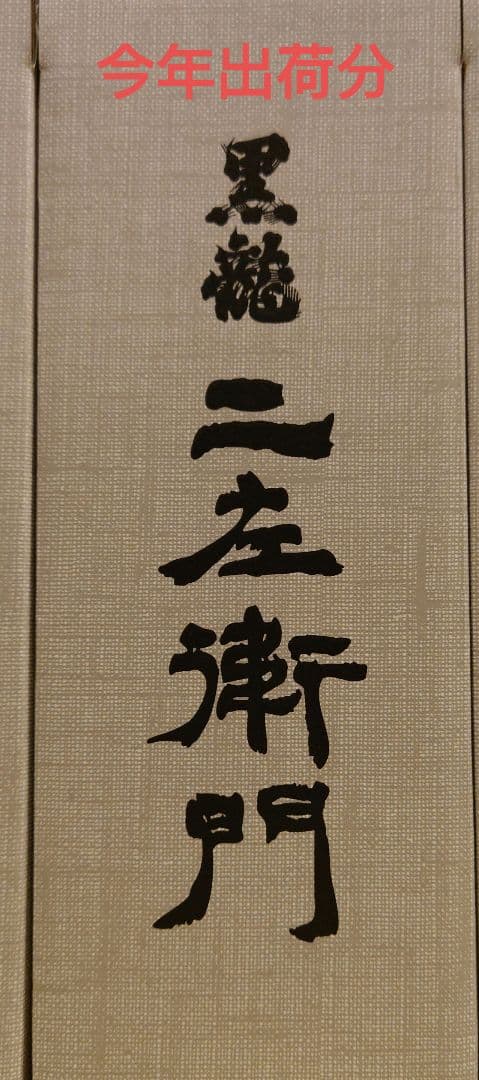 今年出荷分
黒龍
二左衛門